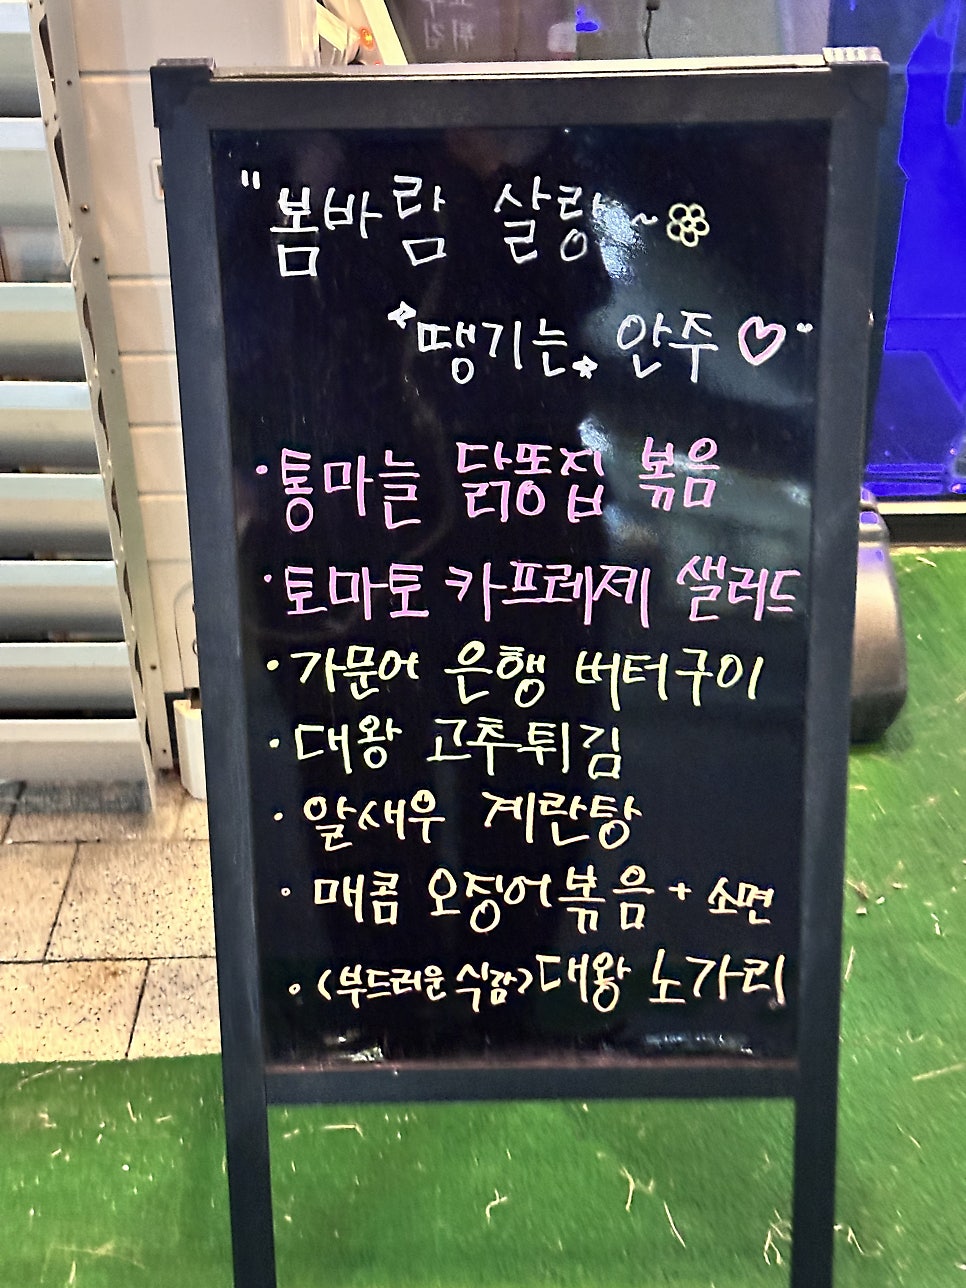 "봄바람 살랑~
땡기는 안주♡"
· 통마늘 닭똥집 볶음
· 토마토 카프레제 샐러드
· 가문어 은행 버터구이
· 대왕 고추튀김
· 알새우 계란탕
· 매콤 오징어볶음 + 소면
· <부드러운 식감> 대왕 노가리